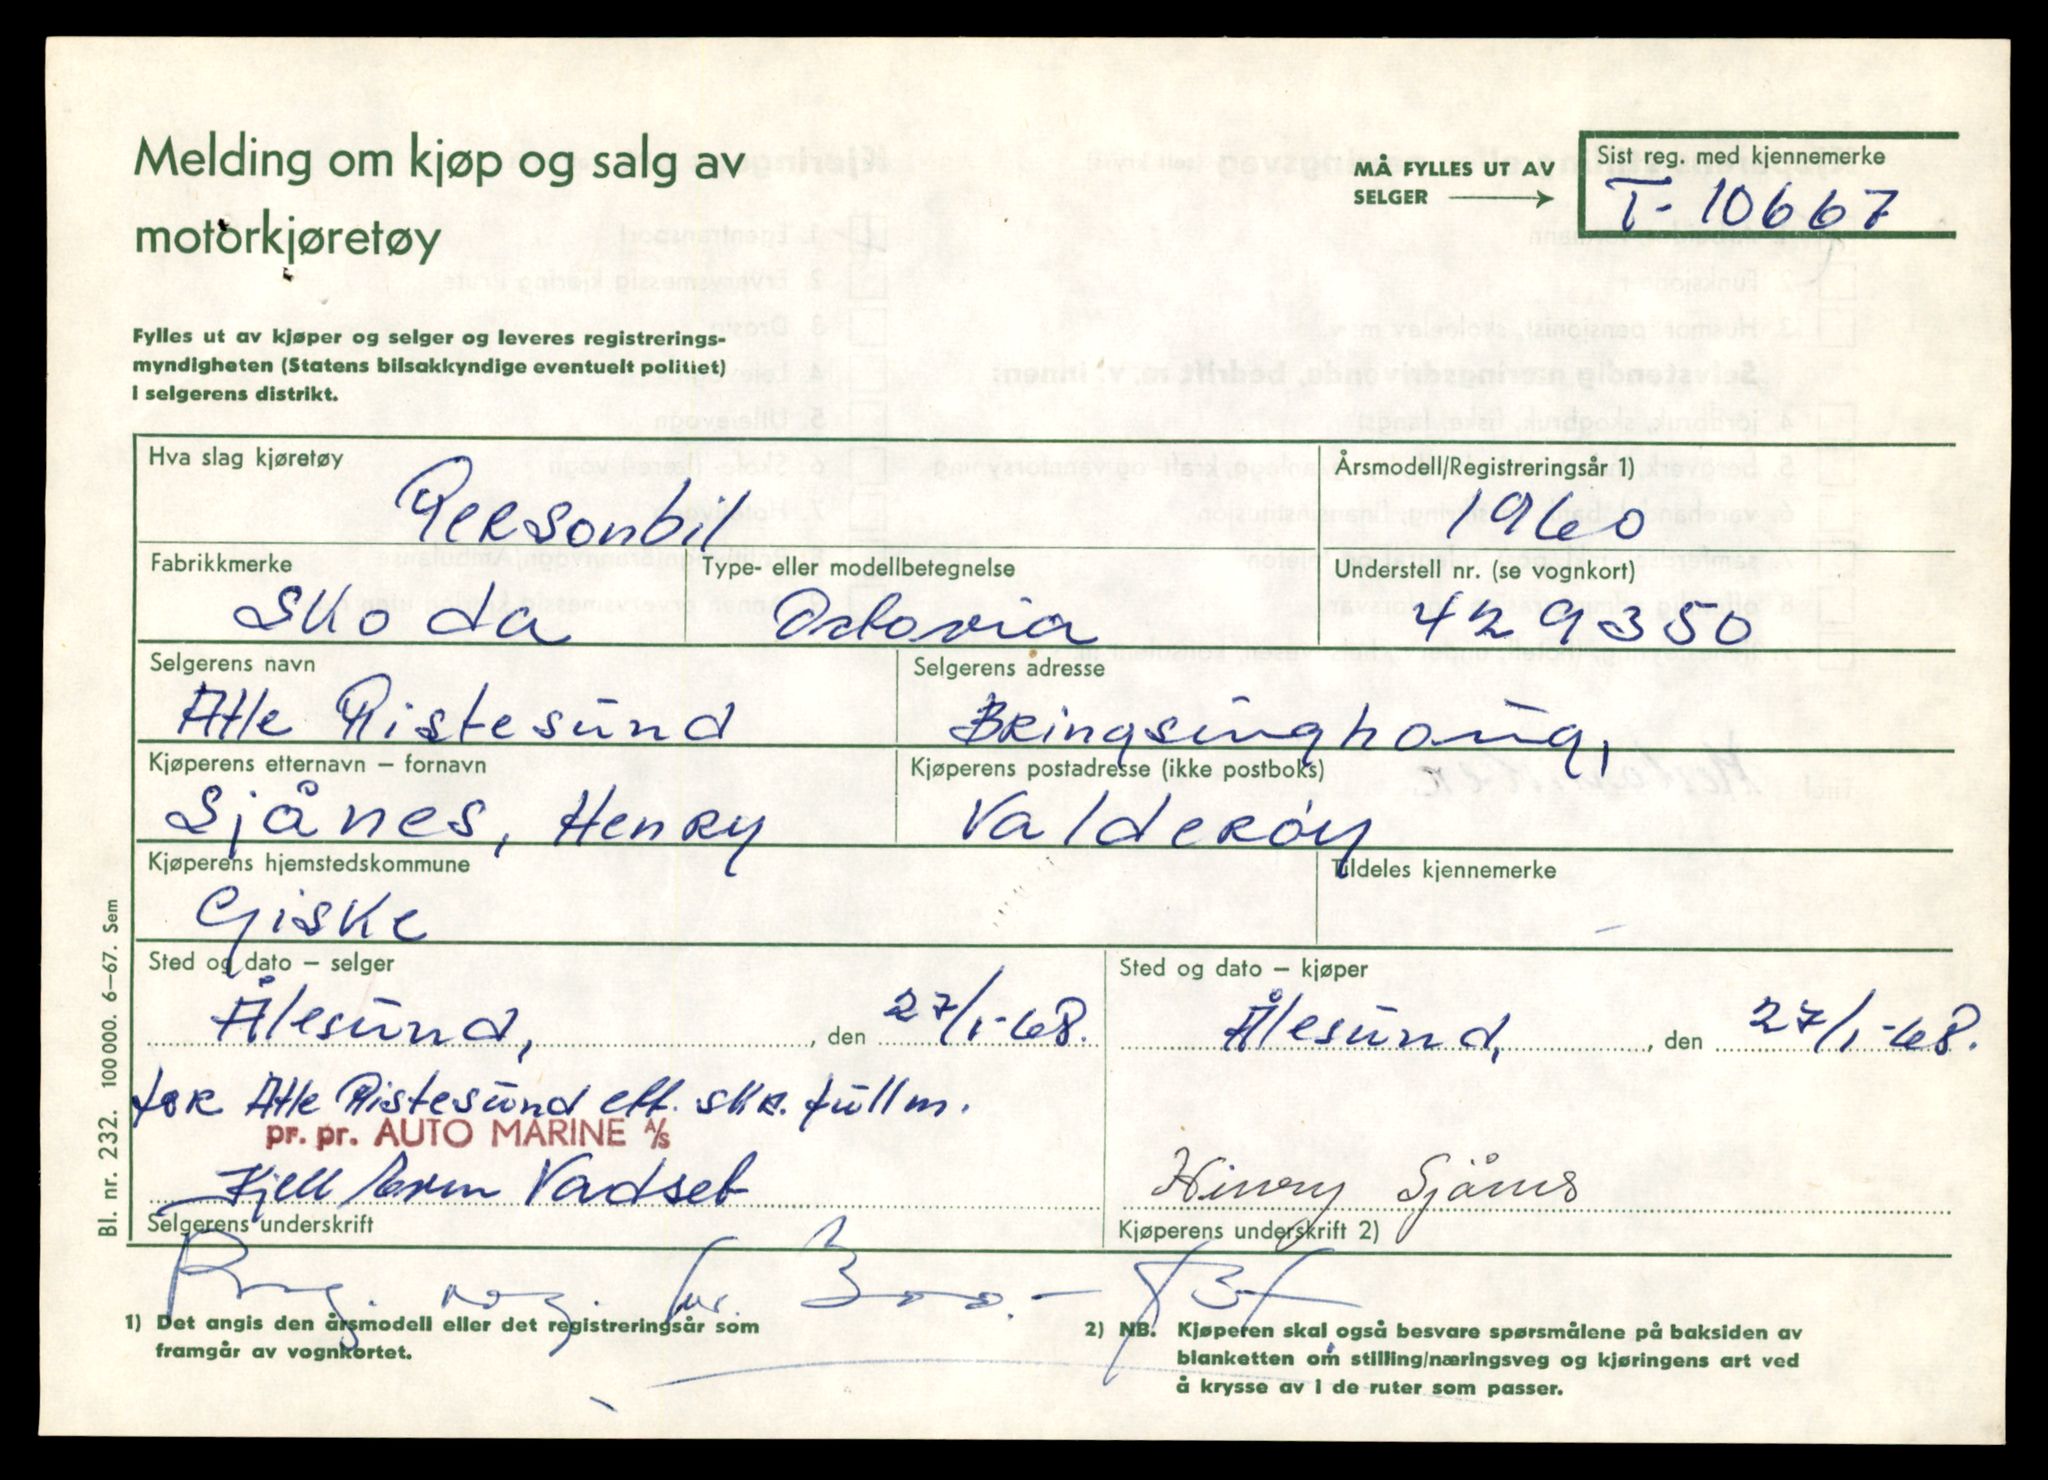 Melding om kjøp og salg av
motorkjøretøy
MÅ FYLLES UT AV
SELGER
Sist reg. med kjennemerke
T-10667
Fylles ut av kjøper og selger og leveres registrerings-
myndigheten (Statens bilsakkyndige eventuelt politiet)
i selgerens distrikt.
Hva slag kjøretøy
Personbil
Årsmodell/Registreringsår 1)
1960
Fabrikkmerke
Skoda
Type- eller modellbetegnelse
Octovia
Understell nr. (se vognkort)
429350
Selgerens navn
Atle Ristesund
Selgerens adresse
Bringsinghaug,
Kjøperens etternavn – fornavn
Sjånes, Henry
Kjøperens postadresse (ikke postboks)
Valderøy
Kjøperens hjemstedskommune
Giske
Tildeles kjennemerke
Sted og dato – selger
Ålesund, , den 27/1-68.
Sted og dato – kjøper
Ålesund, , den 27/1-68.
for Atle Ristesund ett. skr. fullm.
pr. pr. AUTO MARINE A/S
Kjell Arm Vadset
Selgerens underskrift
Henry Sjånes
Kjøperens underskrift 2)
1) Det angis den årsmodell eller det registreringsår som
framgår av vognkortet.
2) NB. Kjøperen skal også besvare spørsmålene på baksiden av
blanketten om stilling/næringsveg og kjøringens art ved
å krysse av i de ruter som passer.
Bl. nr. 232. 100 000. 6–67. Sem